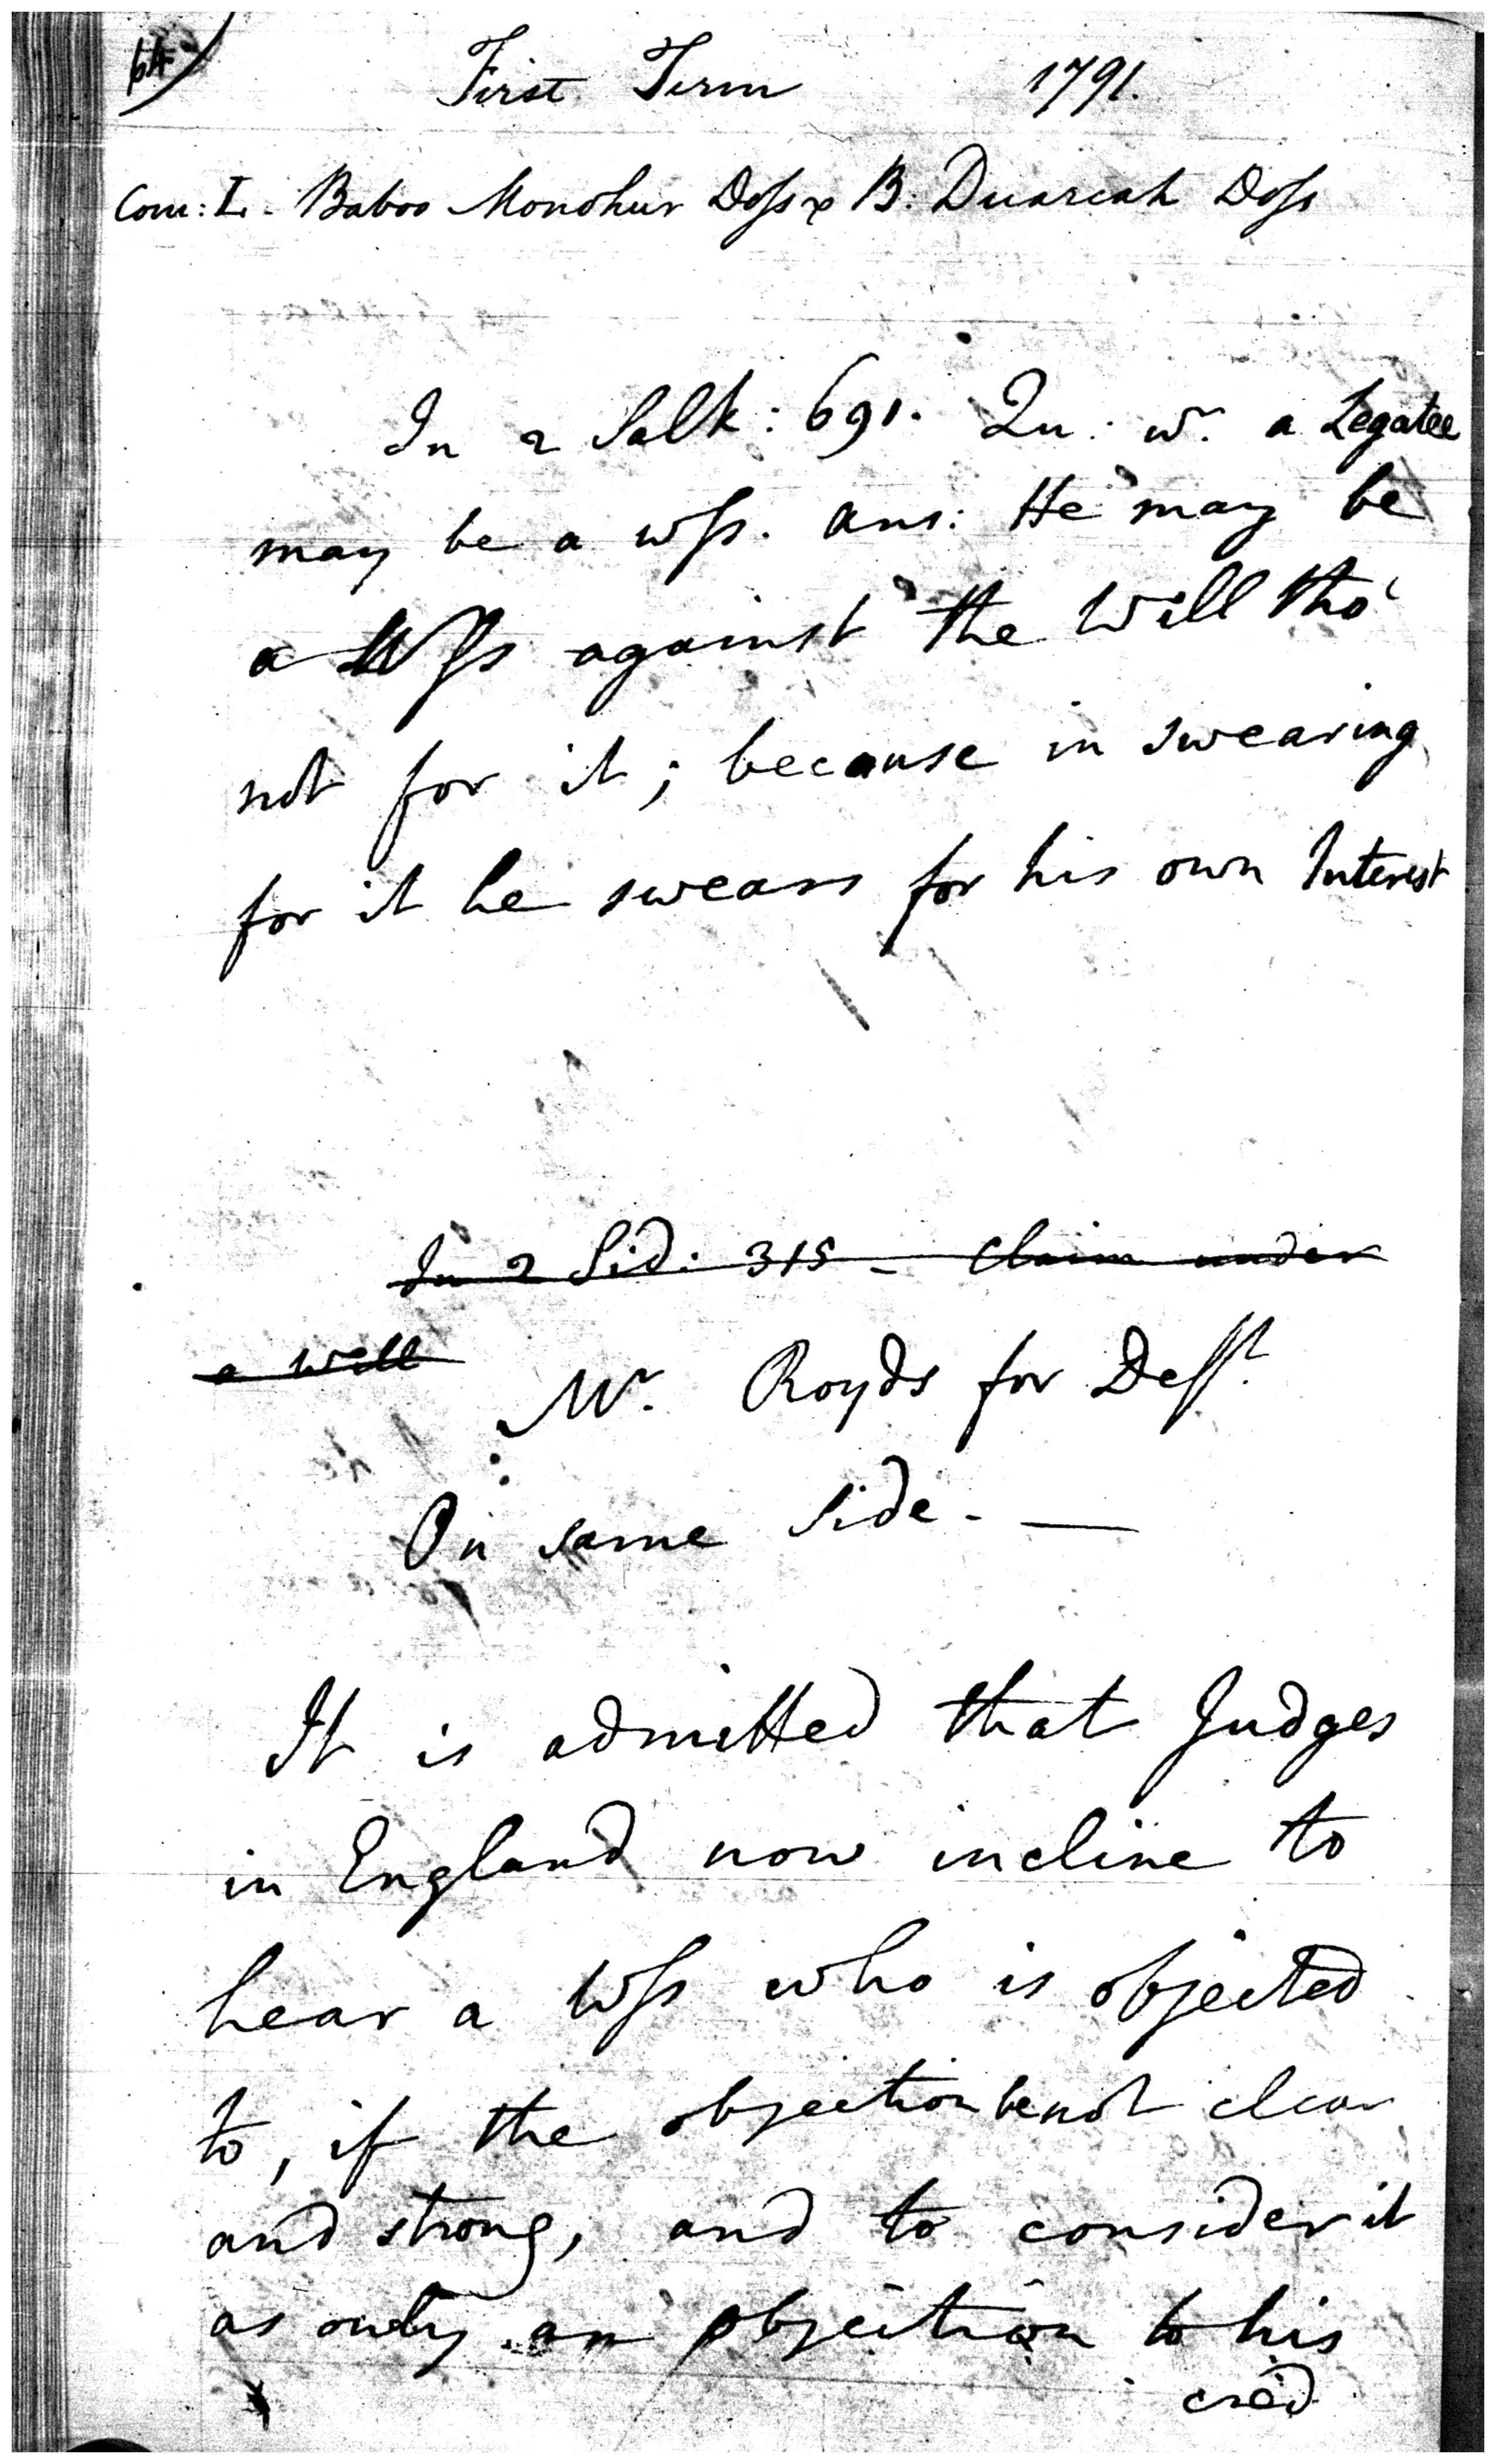 64
First Term 1791.
Com: L. Baboo Monohur Doss v B: Duarcah Doss
In 2 Salk: 691. Qu: wr. a Legatee
may be a wss. ans: He may be
a Wss against the Will tho'
not for it; because in swearing
for it he swears for his own Interest
In 2 Sid: 315 - Claim under
a will
Mr. Royds for Deft.
On same side. —
It is admitted that Judges
in England now incline to
hear a Wss who is objected
to, if the objection be not clear
and strong, and to consider it
as only an objection to his
cred